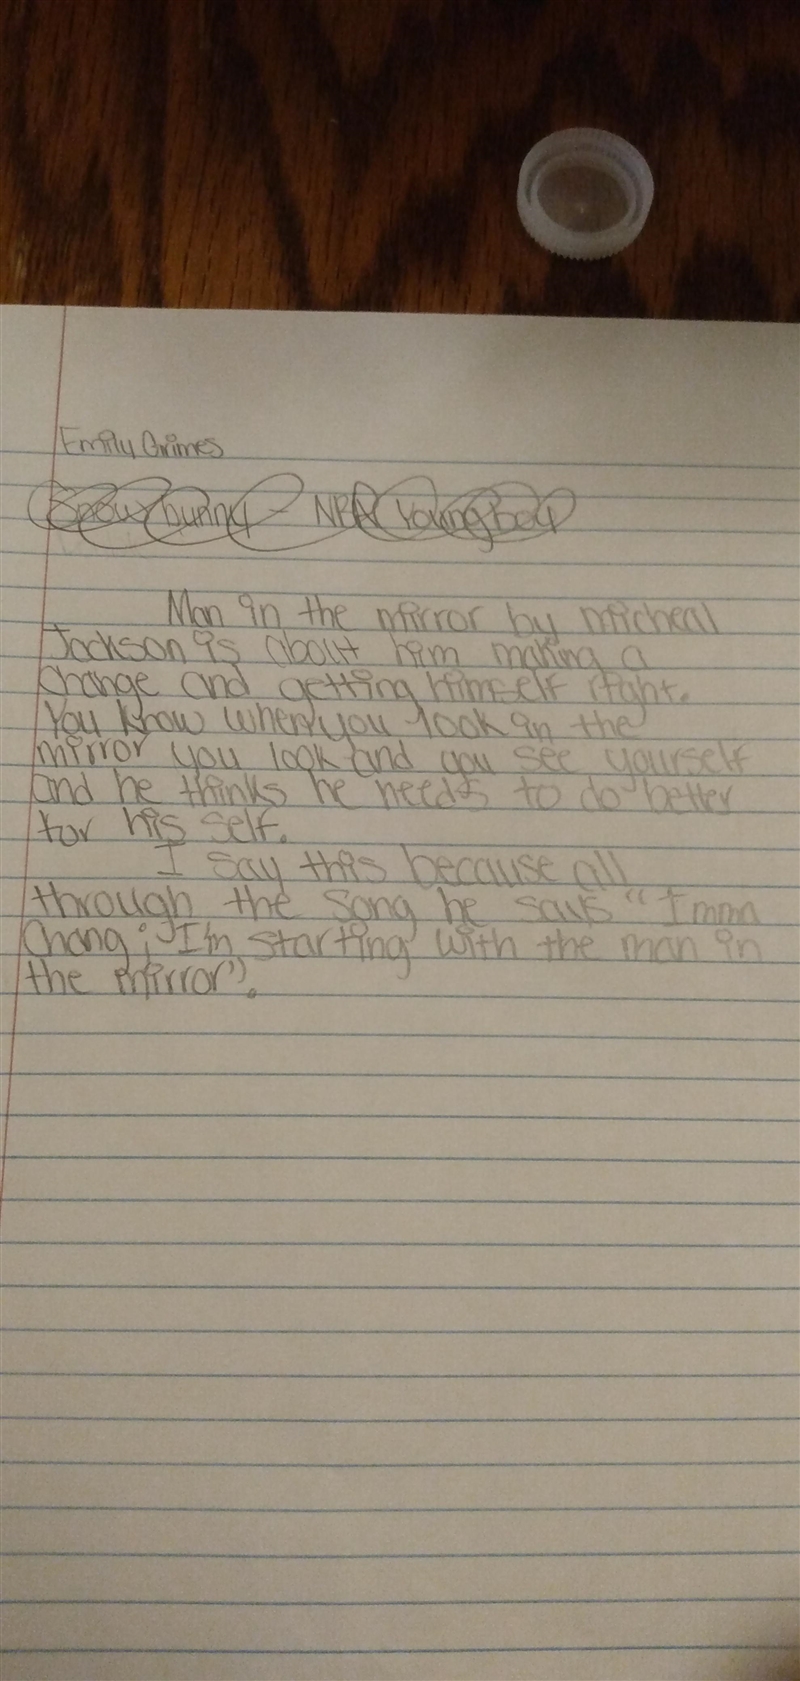 Emily Grimes
Snowbunny - NBA YoungBoy
Man in the mirror by Micheal
Jackson is about him making a
change and getting himself right.
You know when you look in the
mirror you look and you see yourself
and he thinks he needs to do better
for his self.
I say this because all
through the song he says "Imma
Chang", "I'm starting with the man in
the mirror".